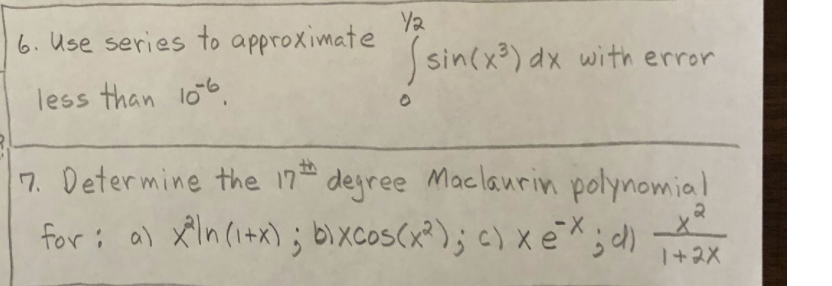 6. Use series to approximate ∫₀^{1/2} sin(x³) dx with error
less than 10⁻⁶.
7. Determine the 17th degree Maclaurin polynomial
for : a) x²ln(1+x) ; b) xcos(x²) ; c) x e⁻ˣ ; d) x²/(1+2x)